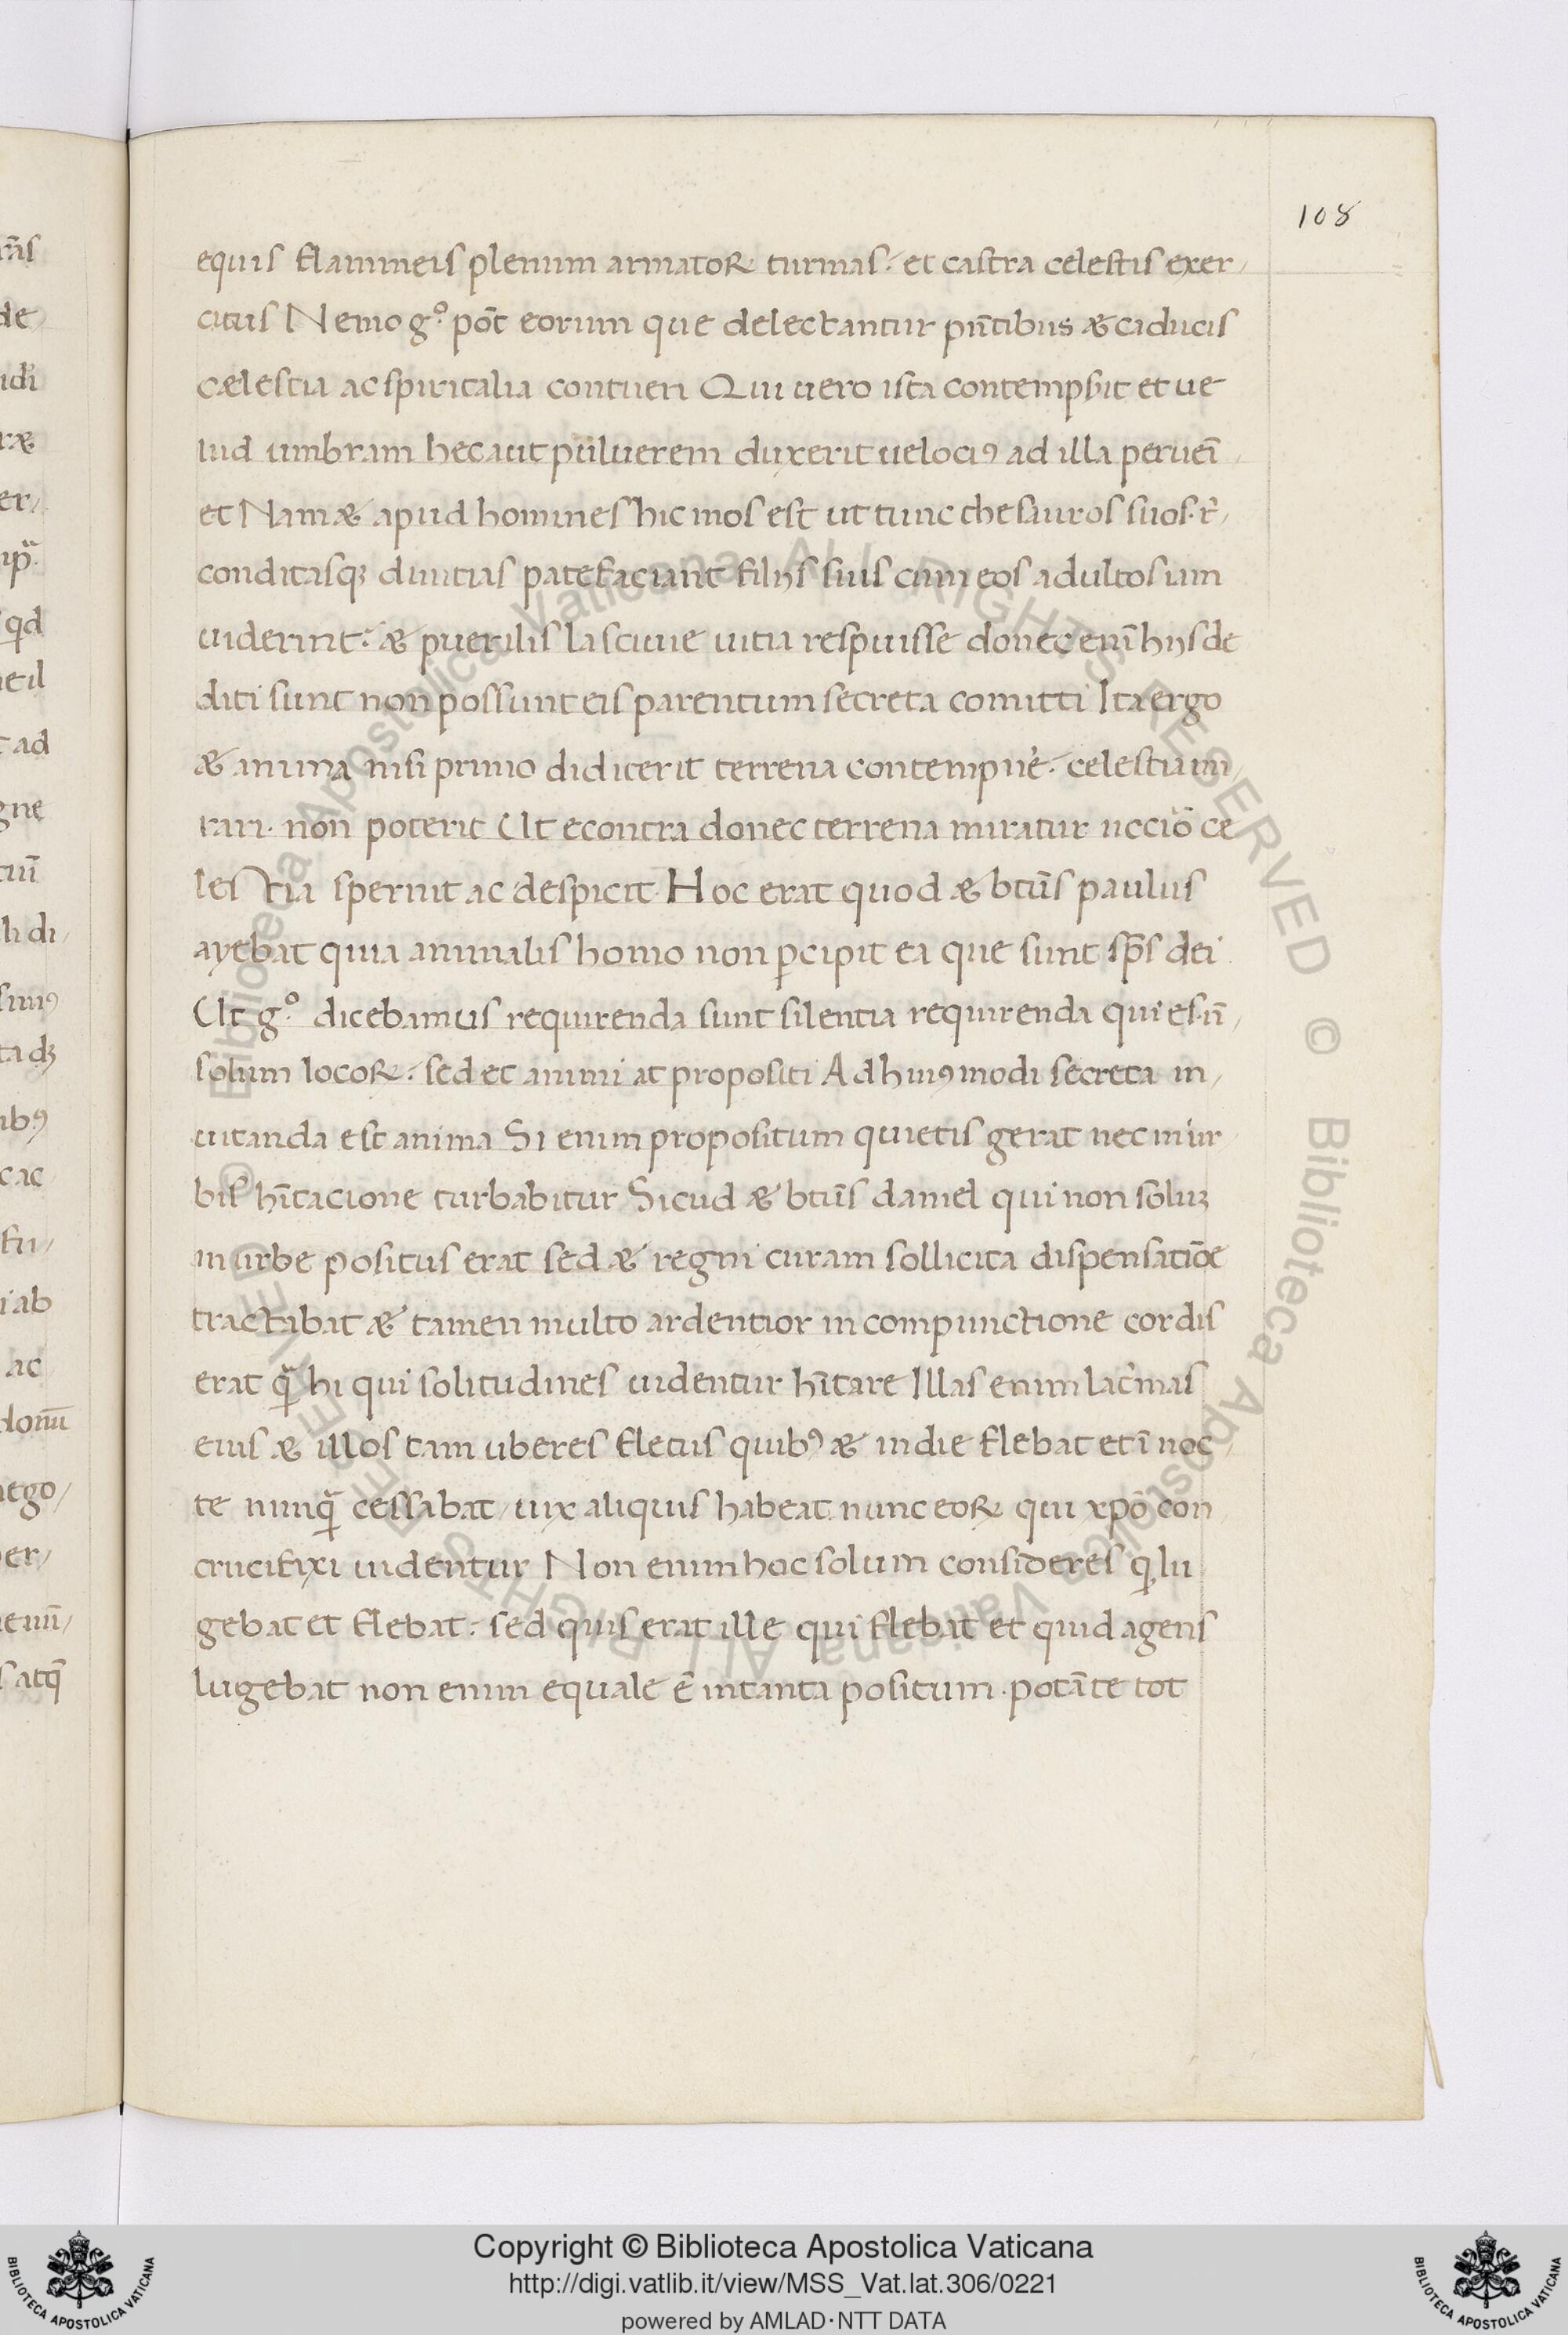 108
equis flammeis plenum armatoꝝ turmas · et castra celestis exer/
citus Nemo g.º pōt eorum que delectantur pn̄tibus æ caducis
cælestia ac spiritalia contueri Qui uero ista contempsit et ue
lud umbram hec aut puluerem duxerit uelociꝰ ad illa peruei̅/
et Nam æ apud homines hic mos est ut tunc thesauros suos · r̄/
conditasqꝫ diuitias patefaciant filijs suis cum eos adultos iam
uiderint · æ puerilis lasciuie uitia respuisse donec eni̅ hijs de
diti sunt non possunt eis parentum secreta comitti Ita ergo
æ anima nisi primo didicerit terrena contempne᷑ · celestia mi/
rari · non poterit Ut econtra donec terrena miratur ce
lestia spernit ac despicit · Hoc erat quod æ btūs paulus
ayebat quia animalis homo non ꝑcipit ea que sunt sp̄s dei
Ut g.º dicebamus requirenda sunt silentia requirenda quies · n̄/
solum locoꝝ · sed et animi at propositi Ad huiꝰmodi secreta in/
uitanda est anima Si enim propositum quietis gerat nec in ur/
bil̵ hi̅tacione turbabitur Sicud æ btūs daniel qui non soluꝫ
in urbe positus erat sed æ regni curam sollicita dispensatiōe
tractabat æ tamen multo ardentior in compunctione cordis
erat qᷓ hi qui solitudines uidentur hi̅tare Illas enim lac̓mas
eius æ illos tam uberes fletus quibꝰ æ in die flebat et i̅ noc/
te nunqᷓ cessabat / uix aliquis habeat nunc eoꝝ qui xp̄o con/
crucifixi uidentur Non enim hoc solum consideres ꝙ lu
gebat et flebat · sed quis erat ille qui flebat et quid agens
lugebat non enim equale ē in tanta positum · potāte tot
Copyright © Biblioteca Apostolica Vaticana
http://digi.vatlib.it/view/MSS_Vat.lat.306/0221
powered by AMLAD·NTT DATA